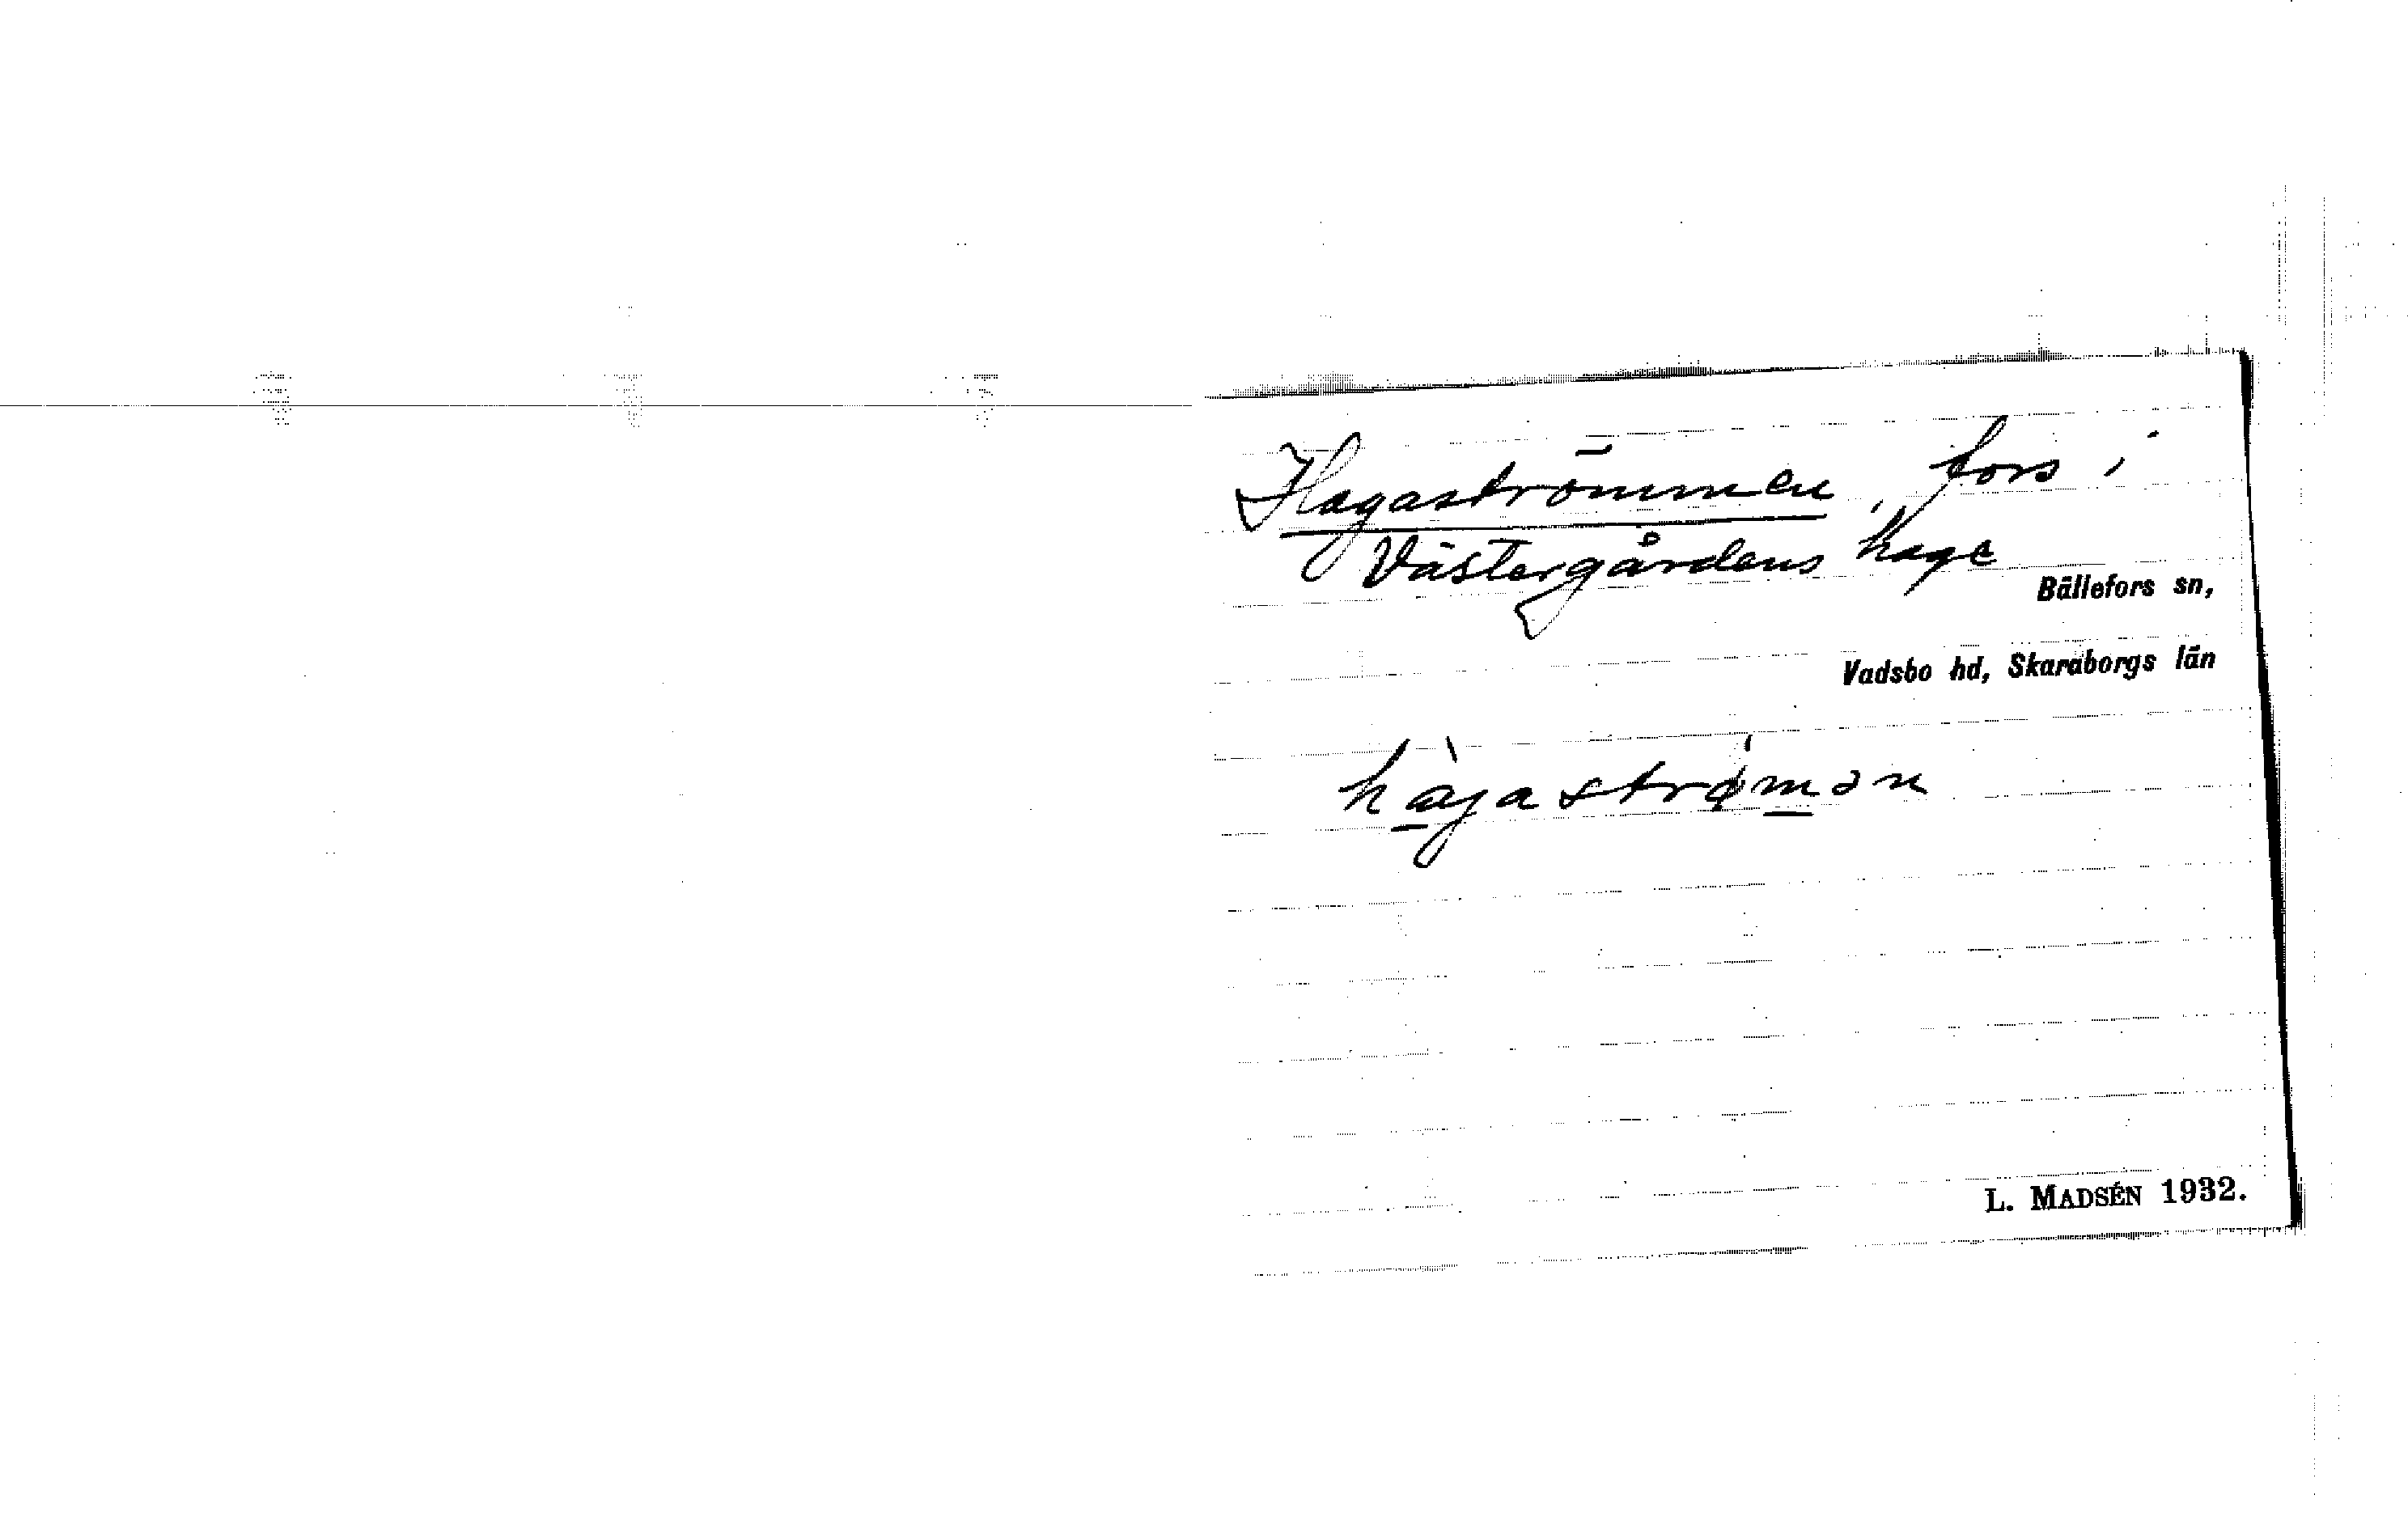 Hagaströmmen, fors i
Västergårdens hage
Bällefors sn,
Vadsbo hd, Skaraborgs län
hàgastrø̀mən
L. MADSÉN 1932.